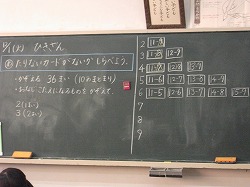 9/1(火) ひきざん
め たりないカードがないかしらべよう。
・かぞえる 36まい(10のまとまり)
・おなじこたえになるものをかぞえて
2 (1まい)
3 (2まい)
2 11-9
3 11-8 12-9
4 11-7 12-8 13-9
5 11-6 12-7 13-8 14-9
6 11-5 12-6 13-7 14-8 15-9
7
8
9